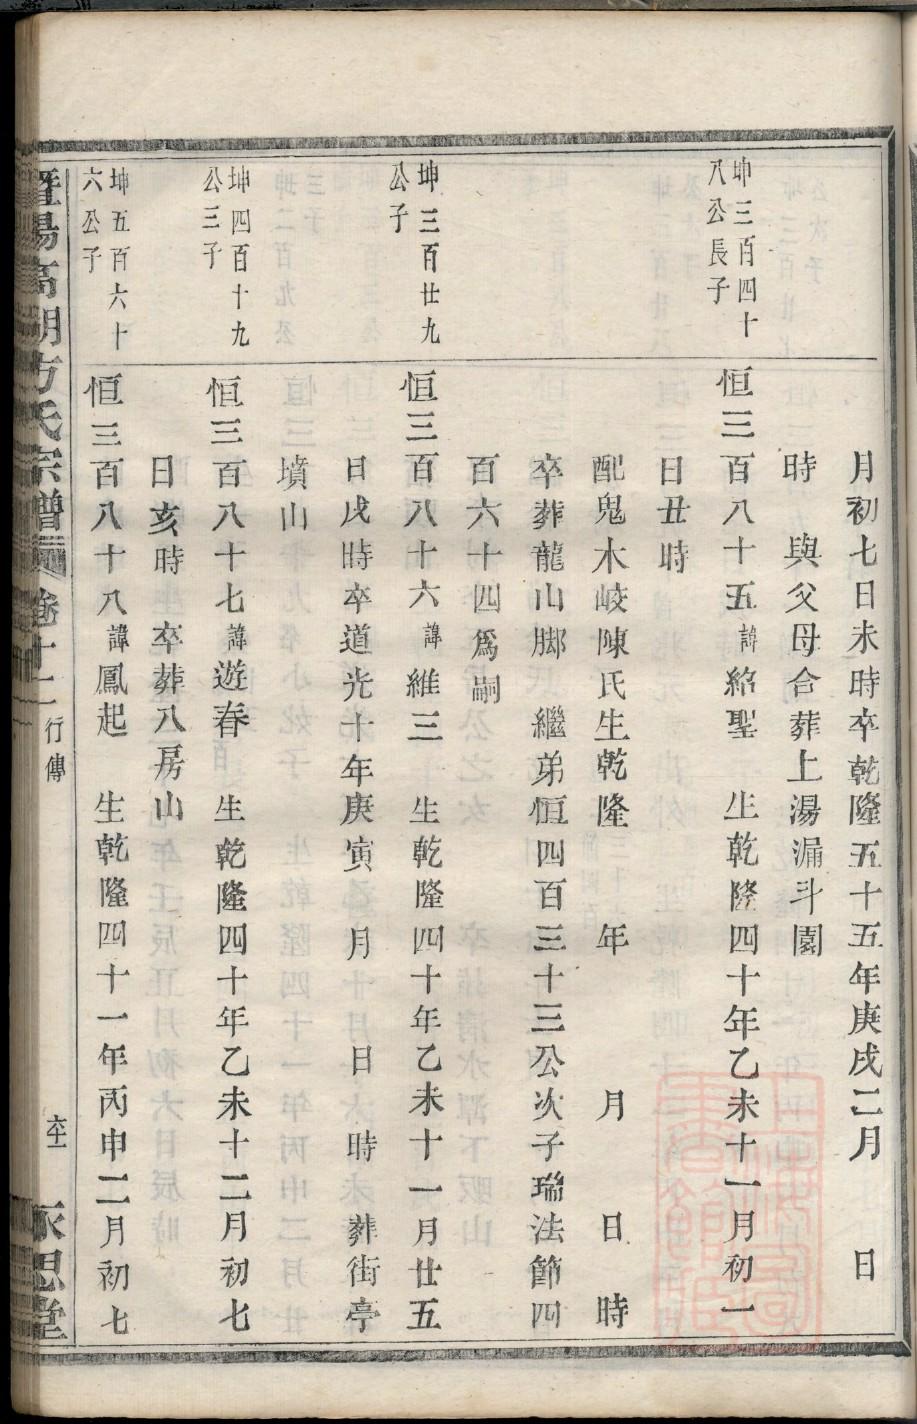 月初七日未時卒乾隆五十五年庚戌二月　日
時　與父母合葬上湯漏斗園
坤三百四十
八公長子
恒三百八十五諱紹聖　生乾隆四十年乙未十一月初一
日丑時
配鬼木岐陳氏生乾隆　年　月　日　時
卒葬龍山脚　繼弟恒四百三十三公次子瑞法節四
百六十四爲嗣
坤三百廿九
公子
恒三百八十六諱維三　生乾隆四十年乙未十一月廿五
日戌時卒道光十年庚寅　月　日　時　葬街亭
墳山
坤四百十九
公三子
恒三百八十七諱遊春　生乾隆四十年乙未十二月初七
日亥時　卒葬八房山
坤五百六十
六公子
恒三百八十八諱鳳起　生乾隆四十一年丙申二月初七
暨陽高湖方氏宗譜　卷十二　行傳　永思堂